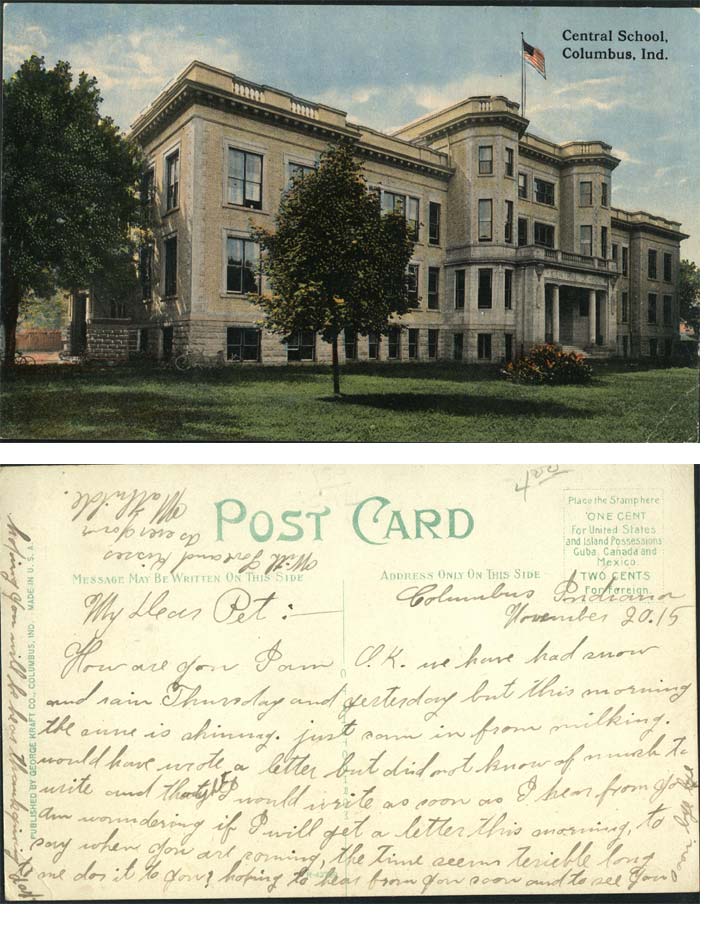 Central School,
Columbus, Ind.
4
POST CARD
Place the Stamp here
ONE CENT
For United States
and Island Possessions
Cuba, Canada and
Mexico.
TWO CENTS
For Foreign.
MESSAGE MAY BE WRITTEN ON THIS SIDE
ADDRESS ONLY ON THIS SIDE
PUBLISHED BY GEORGE KRAFT CO., COLUMBUS, IND. MADE IN U.S.A.
Columbus Indiana
November 20.15
My Dear Pet:—
How are you I am O.K. we have had snow
and rain Thursday and yesterday but this morning
the sune is shining. just cam in from milking.
would have wrote a letter but did not know of much to
write and thought I would write as soon as I hear from you
am wondering if I will get a letter this morning, to
say when you are coming, the time seems terieble long
me dos it to you? hoping to hear from you soon and to see you
hoping you will be here thanksgiving
With Love and Kisses
Mathilde.